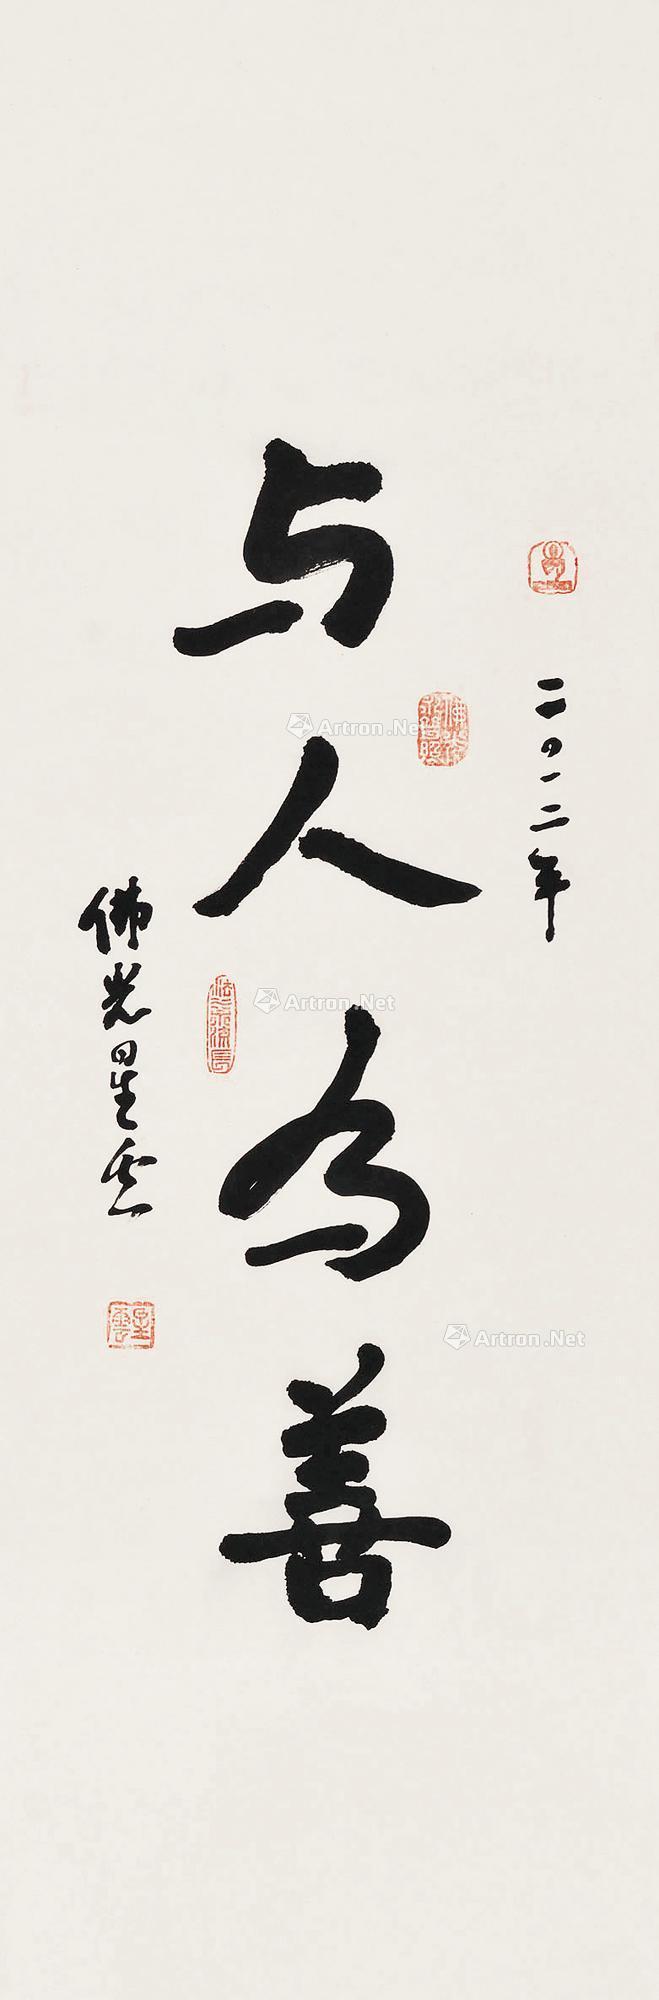 二〇一二年
与人为善
佛光星雲
星雲
Artron.Net
Artron.Net
Artron.Net